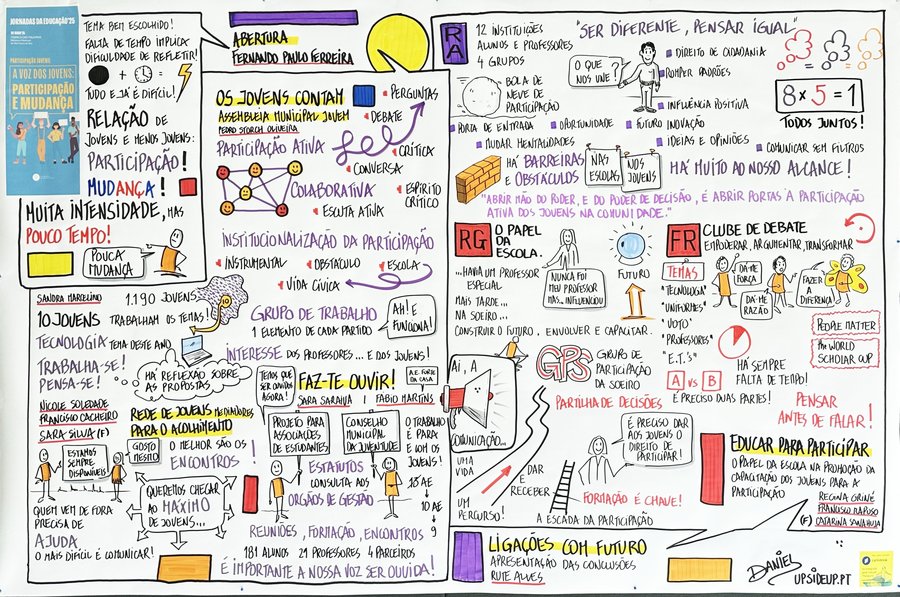 JORNADAS DA EDUCAÇÃO'25
PARTICIPAÇÃO JUVENIL
A VOZ DOS JOVENS:
PARTICIPAÇÃO
E MUDANÇA
TEMA BEM ESCOLHIDO!
FALTA DE TEMPO IMPLICA
DIFICULDADE DE REFLETIR!
+ =
TUDO E JÁ É DIFÍCIL!
RELAÇÃO DE
JOVENS E MENOS JOVENS:
PARTICIPAÇÃO!
MUDANÇA!
MUITA INTENSIDADE, MAS
POUCO TEMPO!
POUCA
MUDANÇA
ABERTURA
FERNANDO PAULO FERREIRA
OS JOVENS CONTAM
ASSEMBLEIA MUNICIPAL JOVEM
PEDRO STORCH OLIVEIRA
PARTICIPAÇÃO ATIVA
COLABORATIVA
PERGUNTAS
DEBATE
CRÍTICA
CONVERSA
ESPÍRITO
CRÍTICO
ESCUTA ATIVA
INSTITUCIONALIZAÇÃO DA PARTICIPAÇÃO
INSTRUMENTAL
OBSTÁCULO
ESCOLA
VIDA CÍVICA
GRUPO DE TRABALHO
1 ELEMENTO DE CADA PARTIDO
AH! E
FUNCIONA!
INTERESSE DOS PROFESSORES... E DOS JOVENS!
SANDRA MARCELINO
1.190 JOVENS
10 JOVENS TRABALHAM OS TEMAS!
TECNOLOGIA TEMA DESTE ANO
TRABALHA-SE!
PENSA-SE!
HÁ REFLEXÃO SOBRE
AS PROPOSTAS
NICOLE SOLEDADE
FRANCISCO CACHEIRO
SARA SILVA (F)
REDE DE JOVENS MEDIADORES
PARA O ACOLHIMENTO
ESTAMOS
SEMPRE
DISPONÍVEIS
GOSTO
MESMO!
O MELHOR SÃO OS
ENCONTROS!
QUEREMOS CHEGAR
AO MÁXIMO
DE JOVENS...
QUEM VEM DE FORA
PRECISA DE
AJUDA
O MAIS DIFÍCIL É COMUNICAR!
TEMOS QUE
SER OUVIDOS
AGORA!
FAZ-TE OUVIR!
SARA SARAIVA | FÁBIO MARTINS
A.E. FORTE
DA CASA
PROJETO PARA
ASSOCIAÇÕES
DE ESTUDANTES
CONSELHO
MUNICIPAL
DA JUVENTUDE
O TRABALHO
É PARA
E COM OS
JOVENS!
13 AE
10 AE
9
ESTATUTOS
CONSULTA AOS
ORGÃOS DE GESTÃO
REUNIÕES, FORMAÇÃO, ENCONTROS
181 ALUNOS 29 PROFESSORES 4 PARCEIROS
É IMPORTANTE A NOSSA VOZ SER OUVIDA!
RA
12 INSTITUIÇÕES
ALUNOS E PROFESSORES
4 GRUPOS
"SER DIFERENTE, PENSAR IGUAL"
O QUE
NOS UNE?
DIREITO DE CIDADANIA
ROMPER PADRÕES
BOLA DE
NEVE DE
PARTICIPAÇÃO
INFLUÊNCIA POSITIVA
8 x 5 = 1
TODOS JUNTOS!
PORTA DE ENTRADA
OPORTUNIDADE
FUTURO
INOVAÇÃO
MUDAR MENTALIDADES
IDEIAS E OPINIÕES
COMUNICAR SEM FILTROS
HÁ BARREIRAS
E OBSTÁCULOS
NAS
ESCOLAS
NOS
JOVENS
HÁ MUITO AO NOSSO ALCANCE!
"ABRIR MÃO DO PODER, E DO PODER DE DECISÃO, É ABRIR PORTAS À PARTICIPAÇÃO
ATIVA DOS JOVENS NA COMUNIDADE."
RG
O PAPEL
DA
ESCOLA.
...HAVIA UM PROFESSOR
ESPECIAL
MAIS TARDE...
NA SOEIRO...
NUNCA FOI
MEU PROFESSOR
MAS... INFLUENCIOU
FUTURO
CONSTRUIR O FUTURO, ENVOLVER E CAPACITAR.
GPS
GRUPO DE
PARTICIPAÇÃO
DA SOEIRO
AI, A
COMUNICAÇÃO...
PARTILHA DE DECISÕES
É PRECISO DAR
AOS JOVENS O
DIREITO DE
PARTICIPAR!
UMA
VIDA
UM
PERCURSO!
DAR
E
RECEBER
FORMAÇÃO É CHAVE!
A ESCADA DA PARTICIPAÇÃO
FR
CLUBE DE DEBATE
EMPODERAR, ARGUMENTAR, TRANSFORMAR
TEMAS
"TECNOLOGIA"
"UNIFORMES"
"VOTO"
"PROFESSORES"
"E.T.'S"
DÁ-ME
FORÇA
DÁ-ME
RAZÃO
FAZER
A
DIFERENÇA!
PEOPLE MATTER
THE WORLD
SCHOLAR CUP
HÁ SEMPRE
FALTA DE TEMPO!
A VS B
É PRECISO DUAS PARTES!
PENSAR
ANTES DE FALAR!
EDUCAR PARA PARTICIPAR
O PAPEL DA ESCOLA NA PROMOÇÃO DA
CAPACITAÇÃO DOS JOVENS PARA A
PARTICIPAÇÃO
FRANCISCO RAPOSO
LIGAÇÕES COM FUTURO
APRESENTAÇÃO DAS CONCLUSÕES
RUTE ALVES
DANIEL
UPSIDEUP.PT